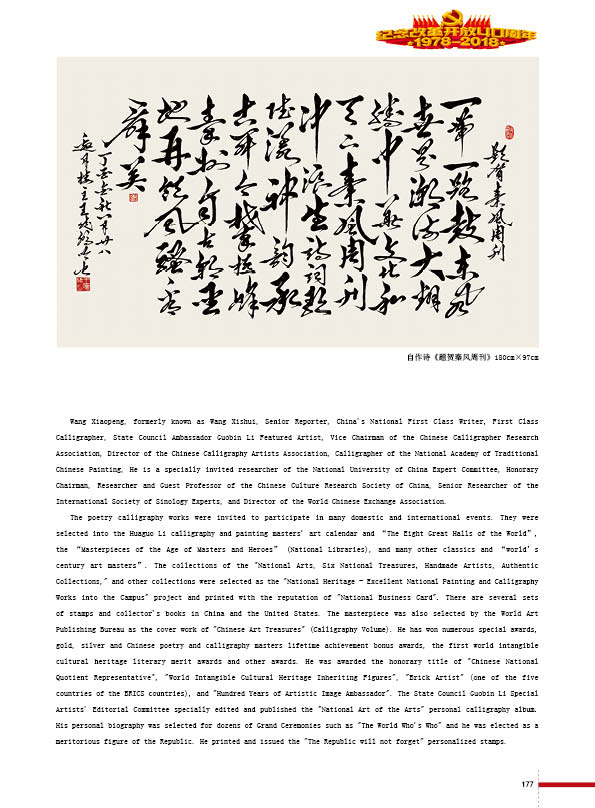 纪念改革开放40周年
1978-2018
题贺秦风周刊
一带一路鼓东风
世界潮流大
中华文化和
天下秦风周刊
冲浪生诗词歌
神韵承
古开今攀极峰
自古
地再领风骚看
群英
丁酉年秋八月廿八
自作诗《题贺秦风周刊》180cm×97cm
Wang Xiaopeng, formerly known as Wang Xishui, Senior Reporter, China's National First Class Writer, First Class
Calligrapher, State Council Ambassador Guobin Li Featured Artist, Vice Chairman of the Chinese Calligrapher Research
Association, Director of the Chinese Calligraphy Artists Association, Calligrapher of the National Academy of Traditional
Chinese Painting, He is a specially invited researcher of the National University of China Expert Committee, Honorary
Chairman, Researcher and Guest Professor of the Chinese Culture Research Society of China, Senior Researcher of the
International Society of Sinology Experts, and Director of the World Chinese Exchange Association.
The poetry calligraphy works were invited to participate in many domestic and international events. They were
selected into the Huaguo Li calligraphy and painting masters' art calendar and “The Eight Great Halls of the World”,
the “Masterpieces of the Age of Masters and Heroes” (National Libraries), and many other classics and “world's
century art masters”. The collections of the "National Arts, Six National Treasures, Handmade Artists, Authentic
Collections," and other collections were selected as the "National Heritage - Excellent National Painting and Calligraphy
Works into the Campus" project and printed with the reputation of "National Business Card". There are several sets
of stamps and collector's books in China and the United States. The masterpiece was also selected by the World Art
Publishing Bureau as the cover work of "Chinese Art Treasures" (Calligraphy Volume). He has won numerous special awards,
gold, silver and Chinese poetry and calligraphy masters lifetime achievement bonus awards, the first world intangible
cultural heritage literary merit awards and other awards. He was awarded the honorary title of "Chinese National
Quotient Representative", "World Intangible Cultural Heritage Inheriting Figures", "Brick Artist" (one of the five
countries of the BRICS countries), and "Hundred Years of Artistic Image Ambassador". The State Council Guobin Li Special
Artists' Editorial Committee specially edited and published the "National Art of the Arts" personal calligraphy album.
His personal biography was selected for dozens of Grand Ceremonies such as "The World Who's Who" and he was elected as a
meritorious figure of the Republic. He printed and issued the "The Republic will not forget" personalized stamps.
177